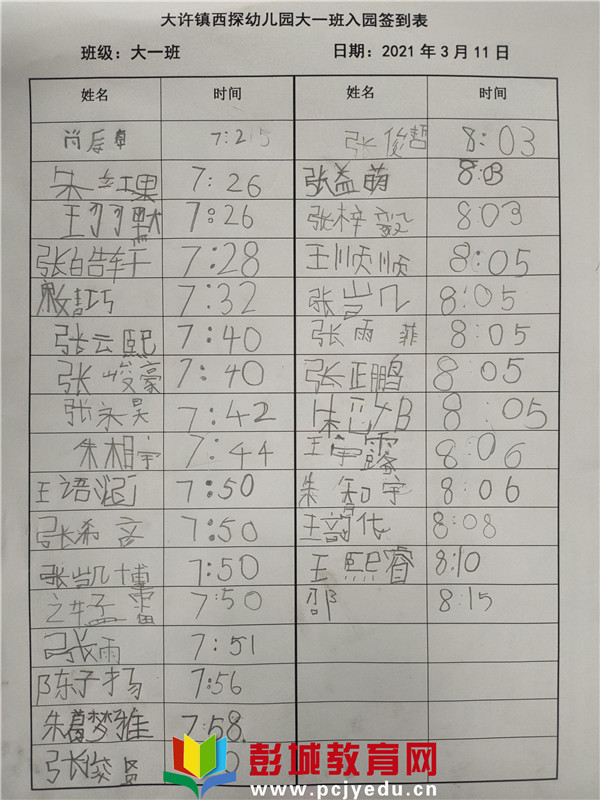 大许镇西探幼儿园大一班入园签到表
班级：大一班 日期：2021年3月11日
姓名 时间 姓名 时间
7:25 张俊哲 8:03
朱红果 7:26 张益萌 8:03
王 默 7:26 张梓毅 8:03
张皓轩 7:28 王顺顺 8:05
7:32 张岁几 8:05
张云熙 7:40 张雨菲 8:05
张峻豪 7:40 张正鹏 8:05
张永昊 7:42 朱 8:05
朱相宇 7:44 王宇露 8:06
王语涵 7:50 朱智宇 8:06
张希 7:50 王韵 8:08
张凯博 7:50 王熙睿 8:10
7:50 邵 8:15
张雨 7:51
陈子扬 7:56
朱葛梦雅 7:58
张俊贤
彭城教育网
www.pcjyedu.cn